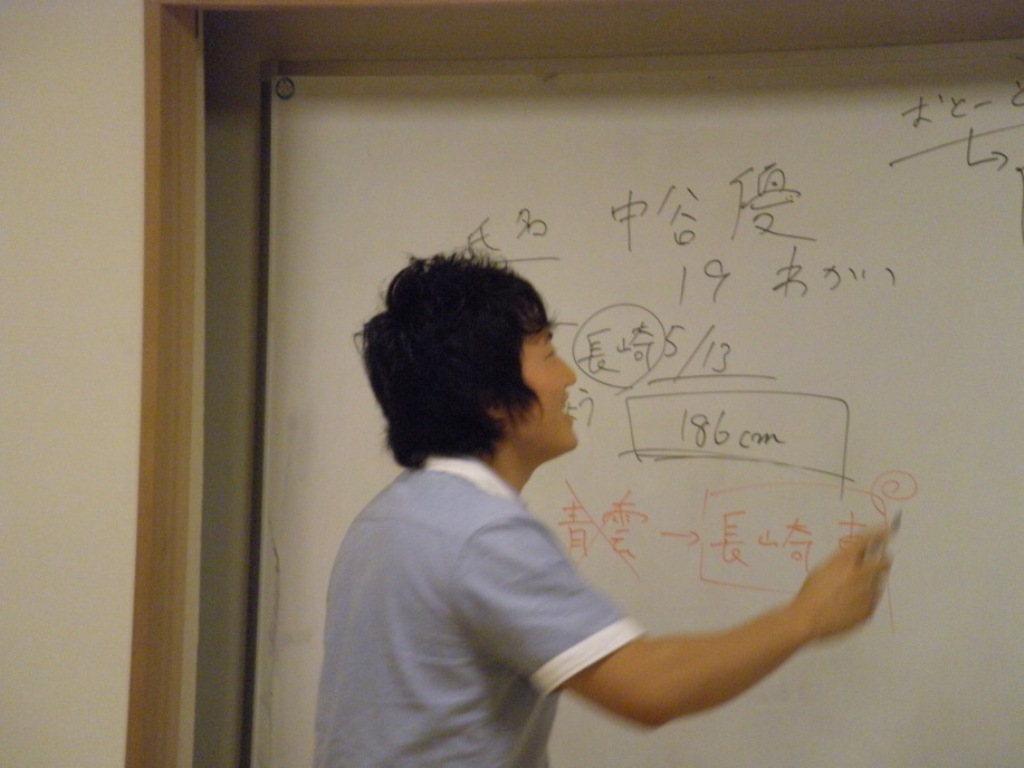 おとーと
氏名 中谷 優
19 わかい
長崎 5/13
186cm
青雲 → 長崎